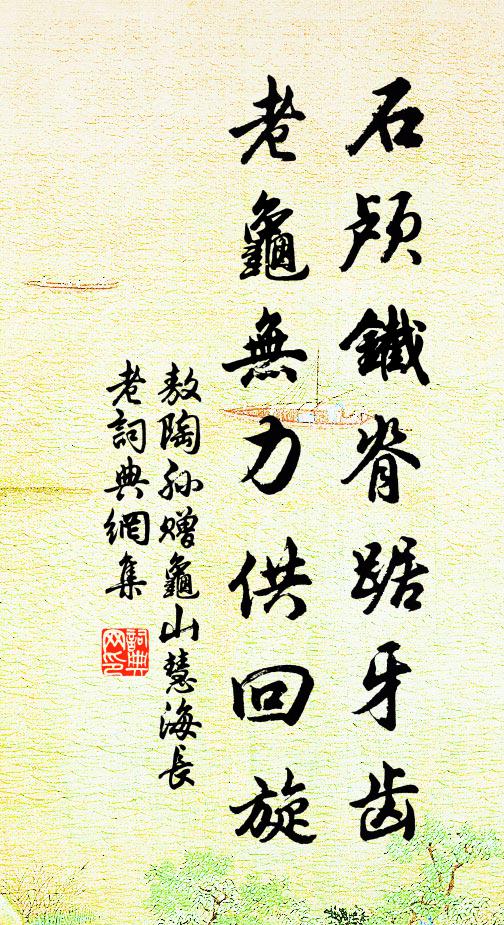 石颅鐵脊踞牙齿
老龜無力供回旋
敖陶孙赠龜山慧海長
老詞典網集
詞典网印